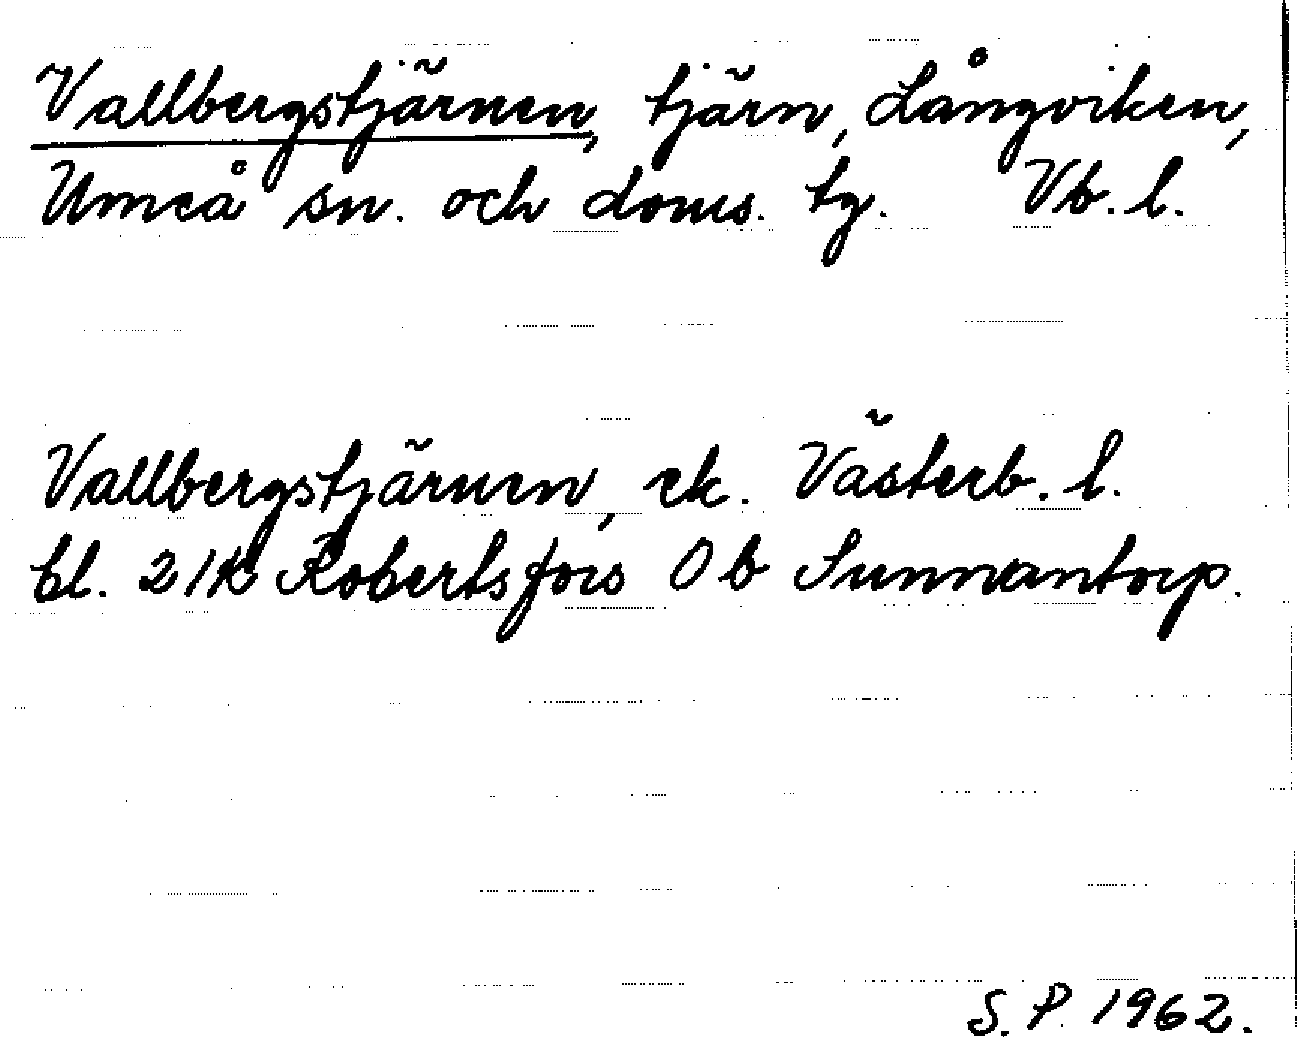 Vallbergstjärnen, tjärn, Långviken,
Umeå sn. och doms. tg. Vb. l.
Vallbergstjärnen, ek. Västerb. l.
bl. 21K Robertsfors 0 b Sunnantorp.
S. P. 1962.